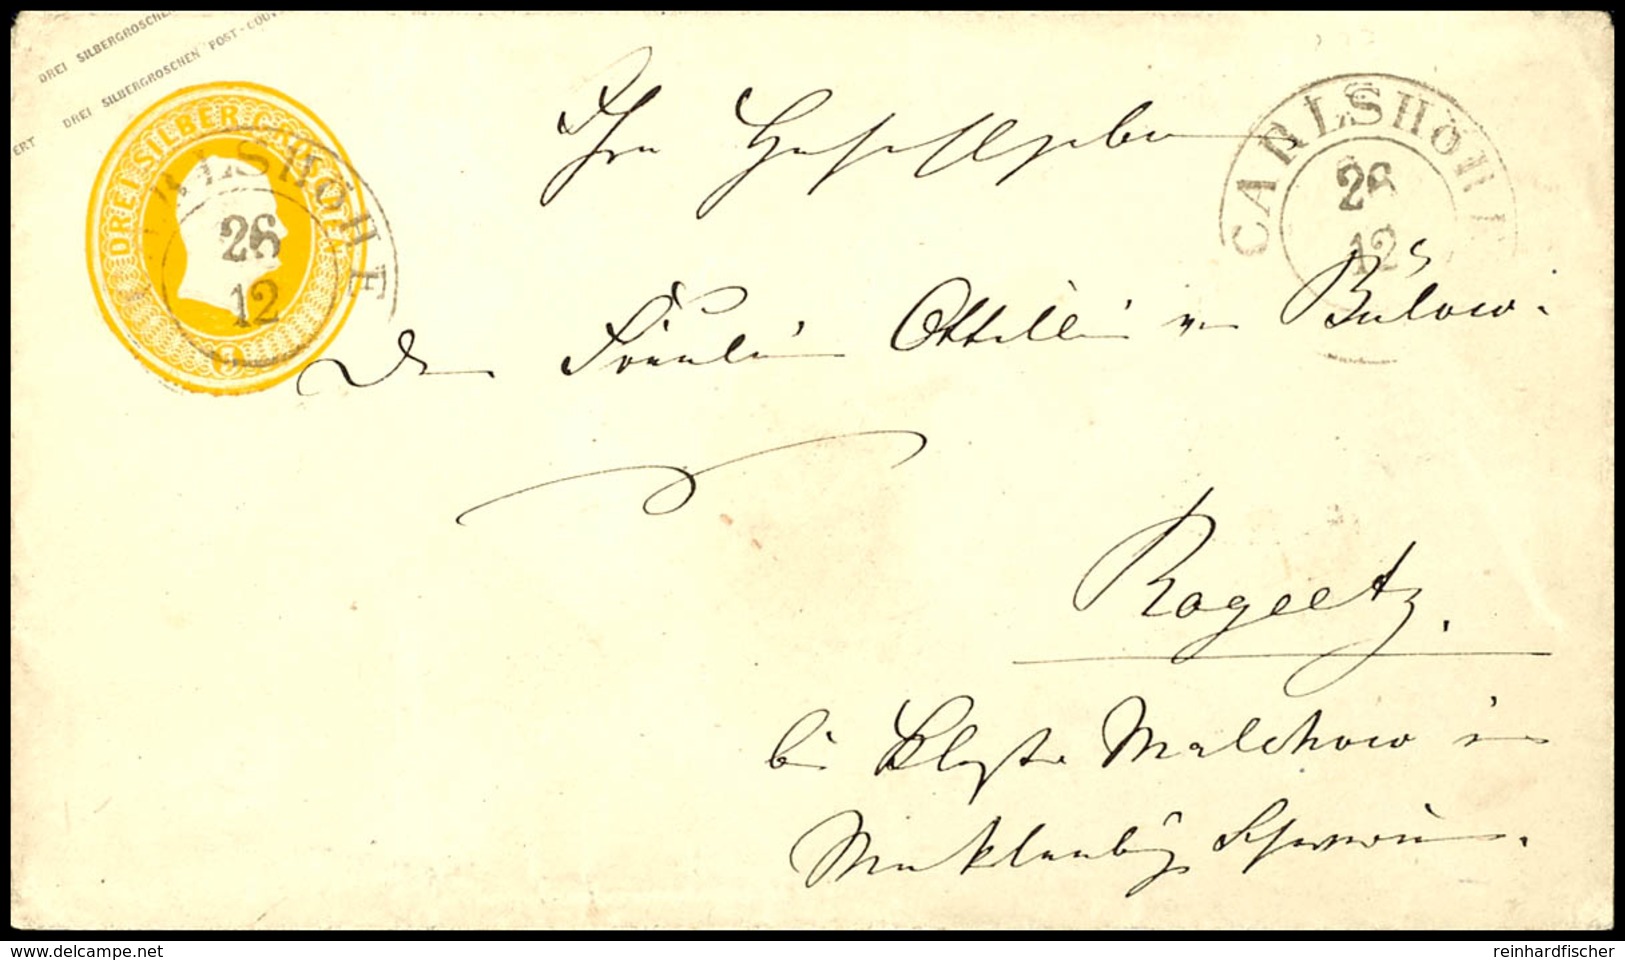 DREI SILBERGROSCHEN
ERT DREI SILBERGROSCHEN POST-COUV
DREI SILBER GROSCHEN
3
CARLSHÖHE
26
12
CARLSHÖHE
26
12
Ihro Hochwohlgeboren
dem Fräulein Ottilie von Bülow.
Rogeetz.
bei Kloster Malchow in
Mecklenburg Schwerin.
delcampe.net
reinhardfischer